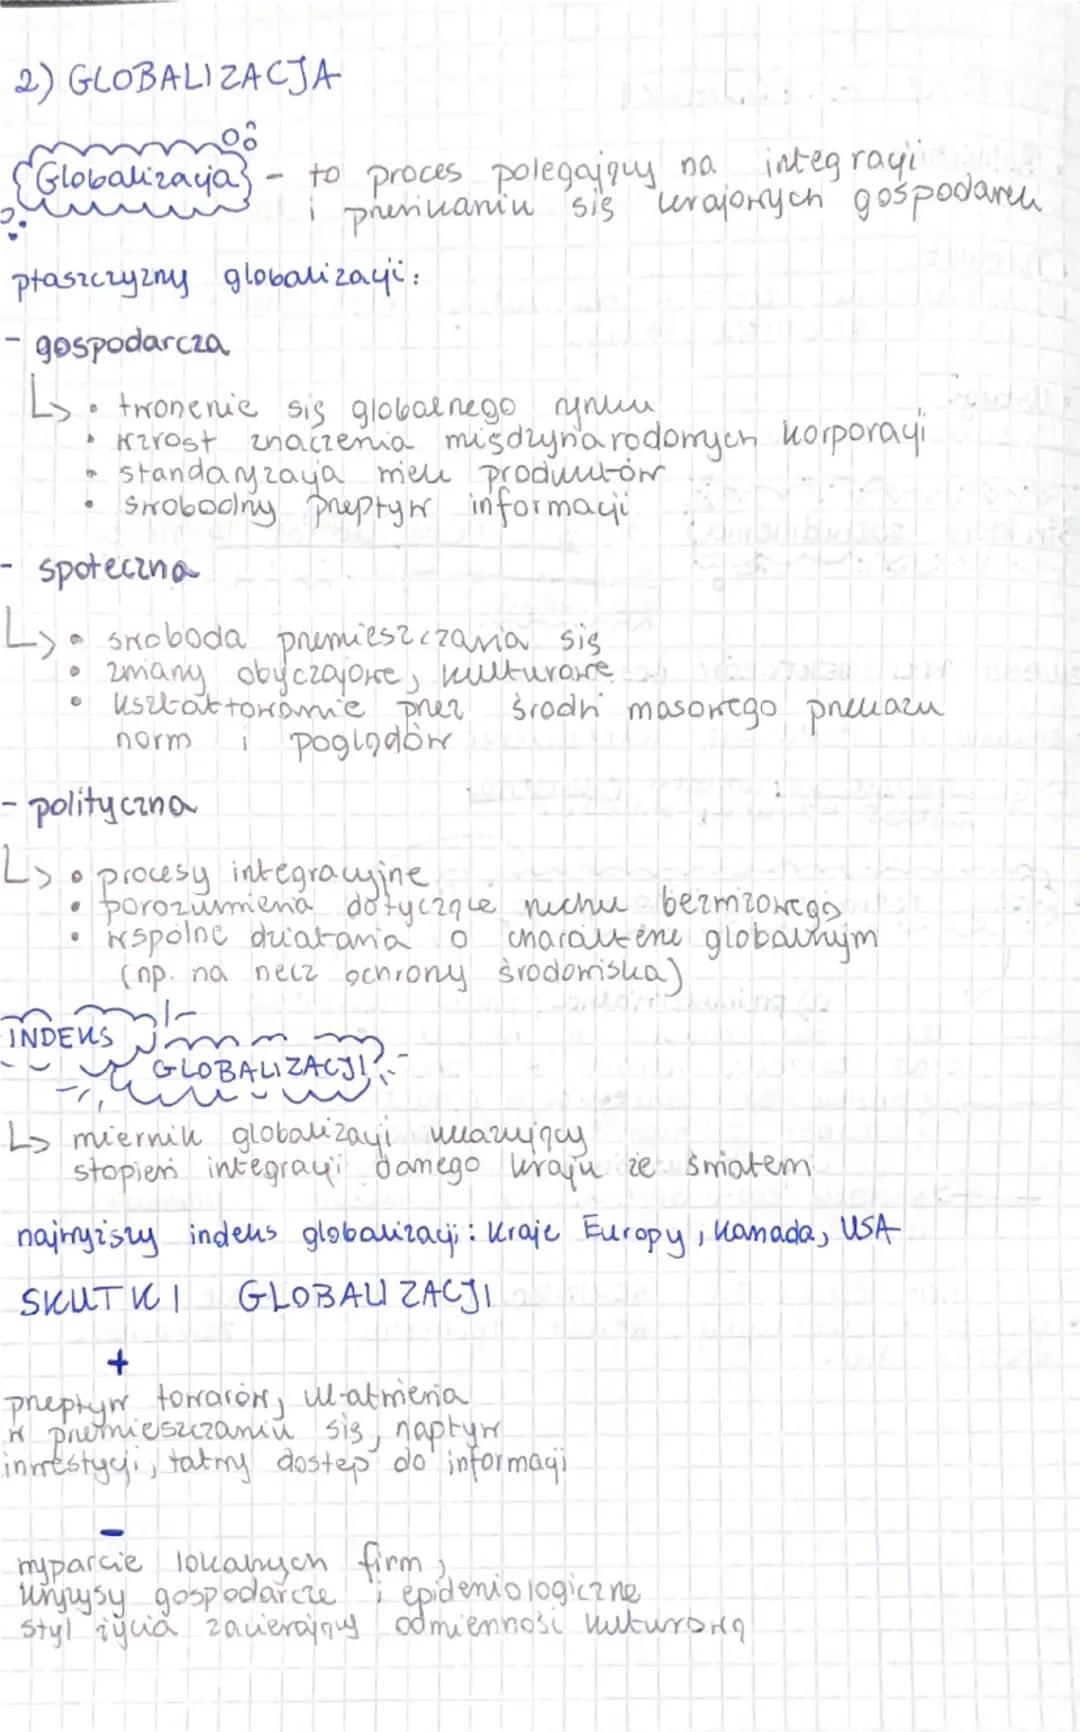 2) GLOBALIZACJA
Globalizacja - to proces polegający na integracji
i przenikaniu się krajowych gospodarek
płaszczyzny globalizacji:
- gospodarcza
↳ • tworzenie się globalnego rynku
• wzrost znaczenia międzynarodowych korporacji
• standaryzacja wielu produktów
• swobodny przepływ informacji
- społeczna
↳ • swoboda przemieszczania się
• zmiany obyczajowe, kulturowe
• kształtowanie przez środki masowego przekazu
norm i poglądów
- polityczna
↳ • procesy integracyjne
• porozumienia dotyczące ruchu bezwizowego
• wspólne działania o charakterze globalnym
(np. na rzecz ochrony środowiska)
INDEKS
GLOBALIZACJI
↳ miernik globalizacji ukazujący
stopień integracji danego kraju ze światem
najwyższy indeks globalizacji: kraje Europy, Kanada, USA
SKUTKI GLOBALIZACJI
+
przepływ towarów, ułatwienia
w przemieszczaniu się, napływ
inwestycji, łatwy dostęp do informacji
-
wyparcie lokalnych firm,
kryzysy gospodarcze i epidemiologiczne
styl życia zacierający odmienność kulturową